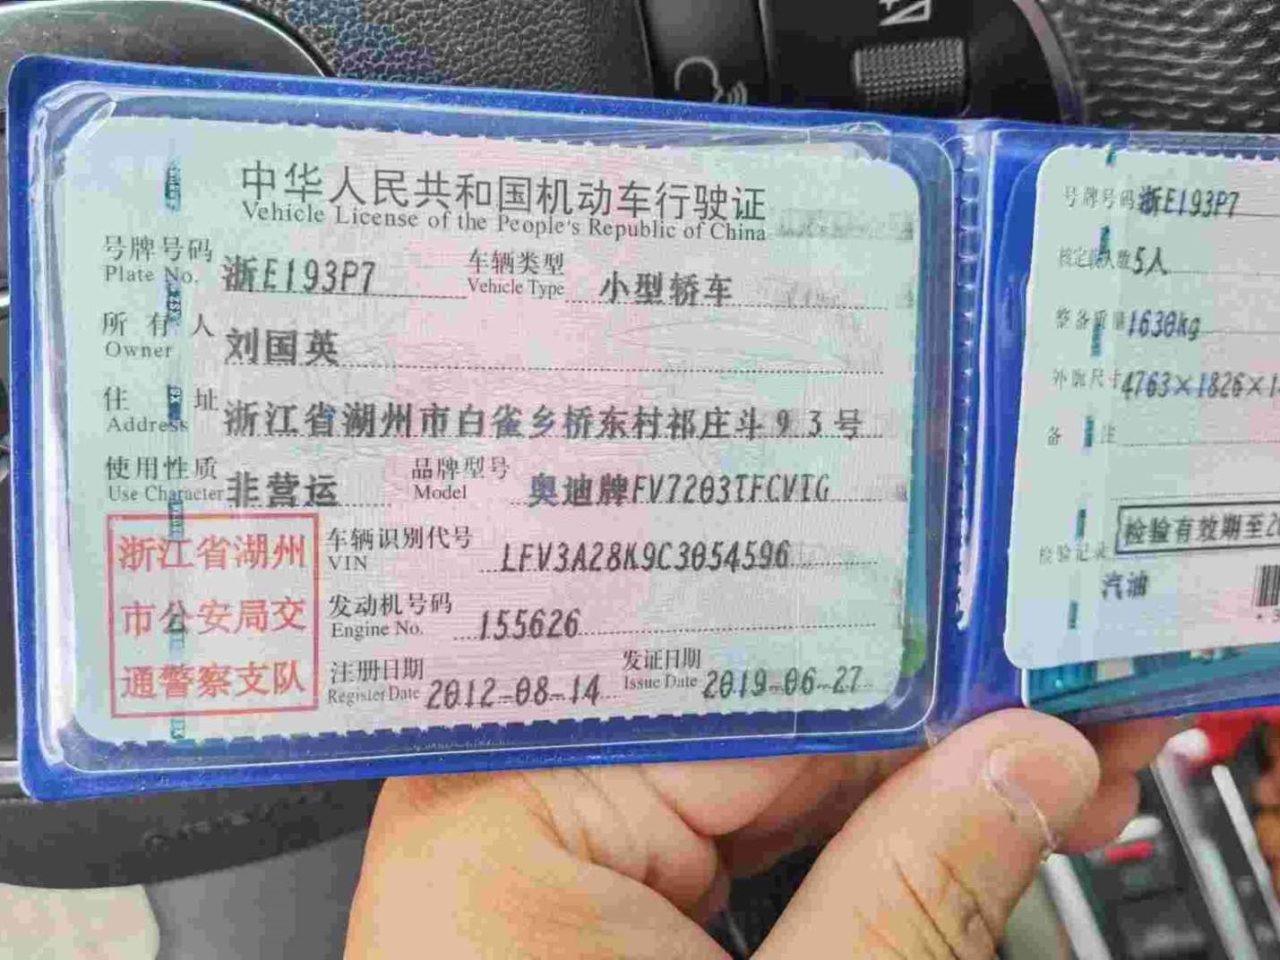 中华人民共和国机动车行驶证
Vehicle License of the People's Republic of China
号牌号码 浙E193P7 车辆类型 小型轿车
Plate No. Vehicle Type
所有人 刘国英
Owner
住址 浙江省湖州市白雀乡桥东村祁庄斗93号
Address
使用性质 非营运 品牌型号 奥迪牌FV7203TFCVTG
Use Character Model
浙江省湖州
市公安局交
通警察支队
车辆识别代号 LFV3A28K9C3054596
VIN
发动机号码 155626
Engine No.
注册日期 2012-08-14 发证日期 2019-06-27
Register Date Issue Date
号牌号码 浙E193P7
核定载人数 5人
整备质量 1630kg
外廓尺寸 4763×1826×1
备注
检验有效期至2
检验记录
汽油